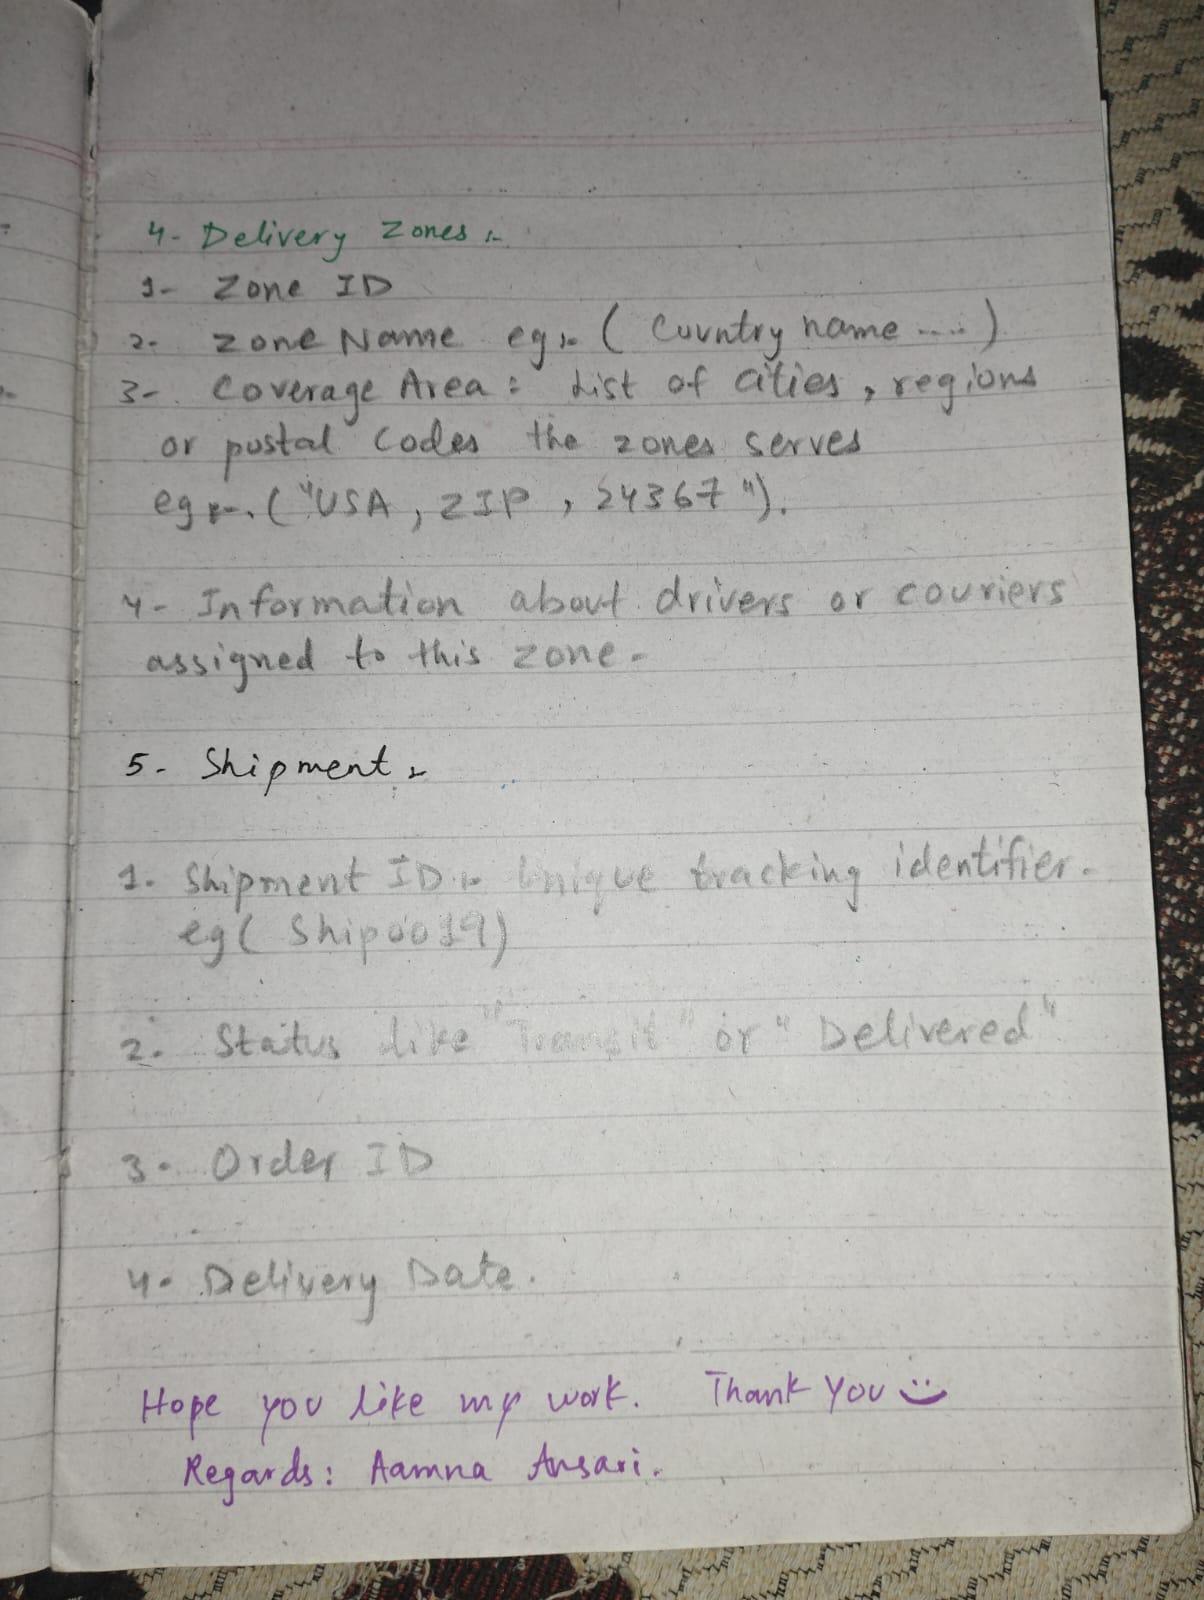 4- Delivery Zones :-
1- Zone ID
2- Zone Name eg:- ( Country name .... )
3- Coverage Area : List of cities , regions
or postal codes the zones serves
eg :- ( "USA , ZIP , 24367 " ).
4- Information about drivers or couriers
assigned to this zone -
5- Shipment :-
1. Shipment ID :- Unique tracking identifier.
eg ( Ship0019)
2. Status like "Transit" or " Delivered "
3. Order ID
4. Delivery Date.
Hope you like my work. Thank You
Regards : Aamna Ansari.